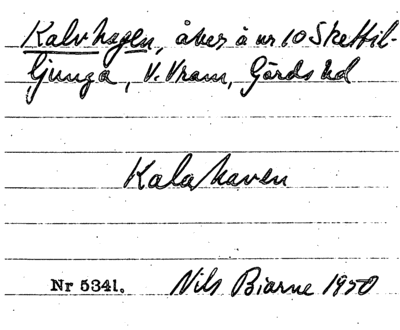 Kalvhagen, åker å nr 10 Skettil-
ljunga, V. Vram, Gärds hd
Kalahaven
Nr 5341. Nils Bjarne 1950